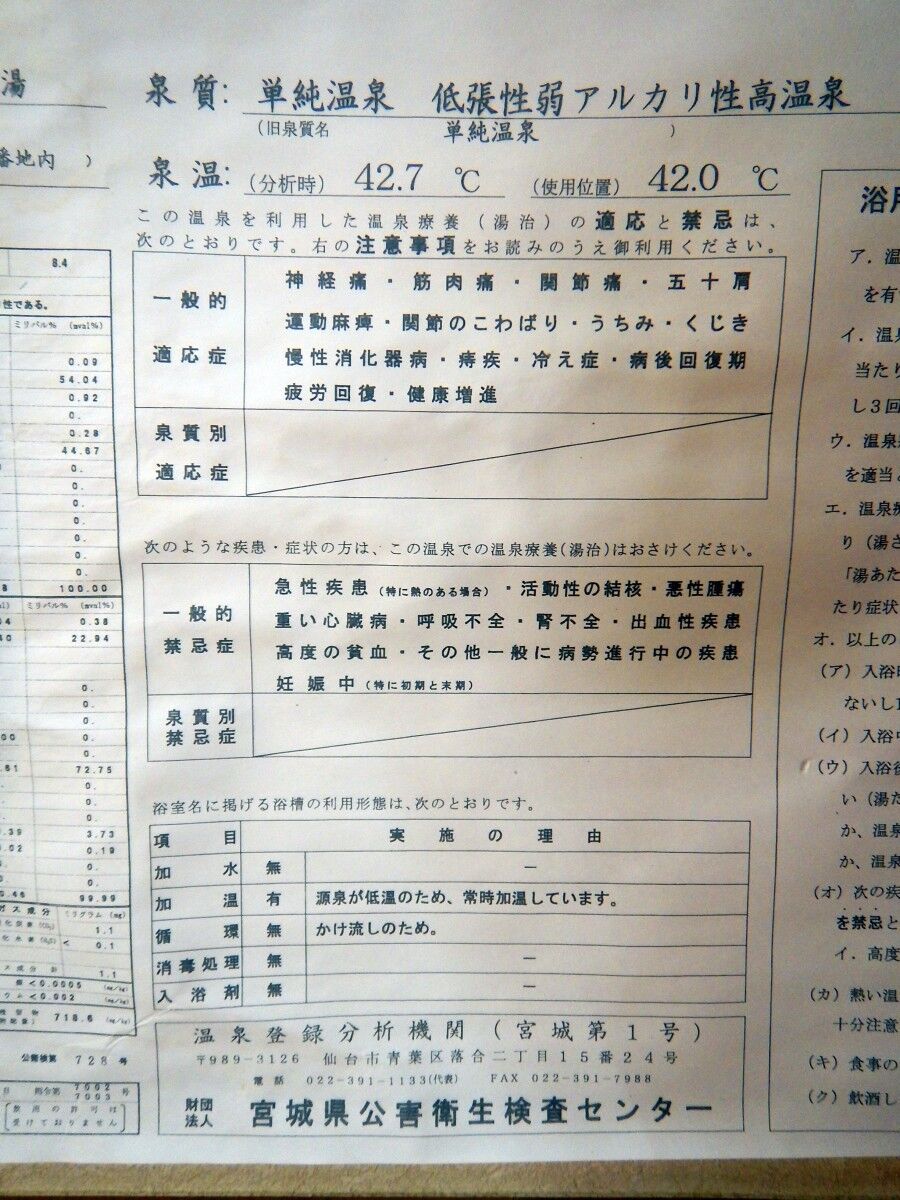 湯
番地内 )
8.4
性である。
ミリバル% (mval%)
0.09
54.04
0.92
0.
0.28
44.67
0.
0.
0.
0.
0.
0.
0.
100.00
ミリバル% (mval%)
0.38
22.94
0.
0.
0.
0.
72.75
0.
0.
0.
3.73
0.19
0.
0.
99.99
ガス成分 ミリグラム (mg)
1.1
< 0.1
1.1
<0.0005 (mg/kg)
<0.002 (mg/kg)
718.6 (mg/kg)
公害検第 728 号
7002 号
7003
飲用の許可は
受けておりません
泉質: 単純温泉 低張性弱アルカリ性高温泉
(旧泉質名 単純温泉 )
泉温: (分析時) 42.7 ℃ (使用位置) 42.0 ℃
この温泉を利用した温泉療養(湯治)の適応と禁忌は、
次のとおりです。右の注意事項をお読みのうえ御利用ください。
一般的
適応症
神経痛・筋肉痛・関節痛・五十肩
運動麻痺・関節のこわばり・うちみ・くじき
慢性消化器病・痔疾・冷え症・病後回復期
疲労回復・健康増進
泉質別
適応症
次のような疾患・症状の方は、この温泉での温泉療養(湯治)はおさけください。
一般的
禁忌症
急性疾患(特に熱のある場合)・活動性の結核・悪性腫瘍
重い心臓病・呼吸不全・腎不全・出血性疾患
高度の貧血・その他一般に病勢進行中の疾患
妊娠中(特に初期と末期)
泉質別
禁忌症
浴室名に掲げる浴槽の利用形態は、次のとおりです。
項目 実施の理由
加水 無 ー
加温 有 源泉が低温のため、常時加温しています。
循環 無 かけ流しのため。
消毒処理 無 ー
入浴剤 無 ー
温泉登録分析機関(宮城第1号)
〒989-3126 仙台市青葉区落合二丁目15番24号
電話 022-391-1133(代表) FAX 022-391-7988
財団法人 宮城県公害衛生検査センター
浴用
ア．温
を有
イ．温泉
当たり
し3回
ウ．温泉
を適当
エ．温泉療
り(湯さ
「湯あた
たり症状
オ．以上の
(ア)入浴
ないし
(イ)入浴
(ウ)入浴後
い(湯た
か、温泉
か、温泉
(オ)次の疾
を禁忌と
イ．高度
(カ)熱い温
十分注意
(キ)食事の
(ク)飲酒し